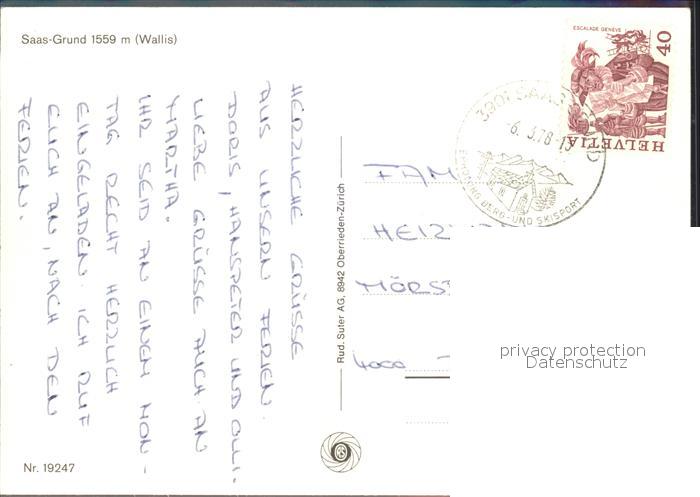 Saas-Grund 1559 m (Wallis)
HERZLICHE GRÜSSE
AUS UNSERN FERIEN.
DORIS, HANSPETER UND OLLI-
LIEBE GRÜSSE AUCH AN
MARTHA.
IHR SEID AN EINEM MON-
TAG RECHT HERZLICH
EINGELADEN. ICH RUF
EUCH AN, NACH DEN
FERIEN.
Nr. 19247
Rud. Suter AG, 8942 Oberrieden-Zürich
ESCALADE GENÈVE
40
HELVETIA
3901 SAAS
-6. 3.78-
BERG- UND SKISPORT
FAM
HEIZ
MÖRS
4000
privacy protection
Datenschutz